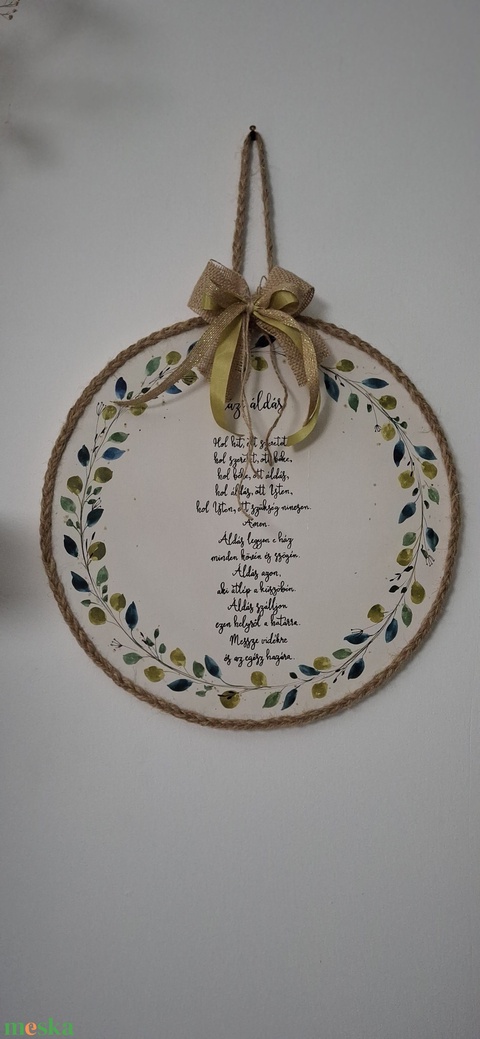 áldás
Hol hit, ott szeretet,
hol szeretet, ott béke,
hol béke, ott áldás,
hol áldás, ott Isten,
hol Isten, ott szükség nincsen.
Ámen.
Áldás legyen e ház
minden kövén és szögén.
Áldás azon,
aki átlép a küszöbön.
Áldás szálljon
ezen helyről a határra.
Messze vidékre
és az egész hazára.
meska